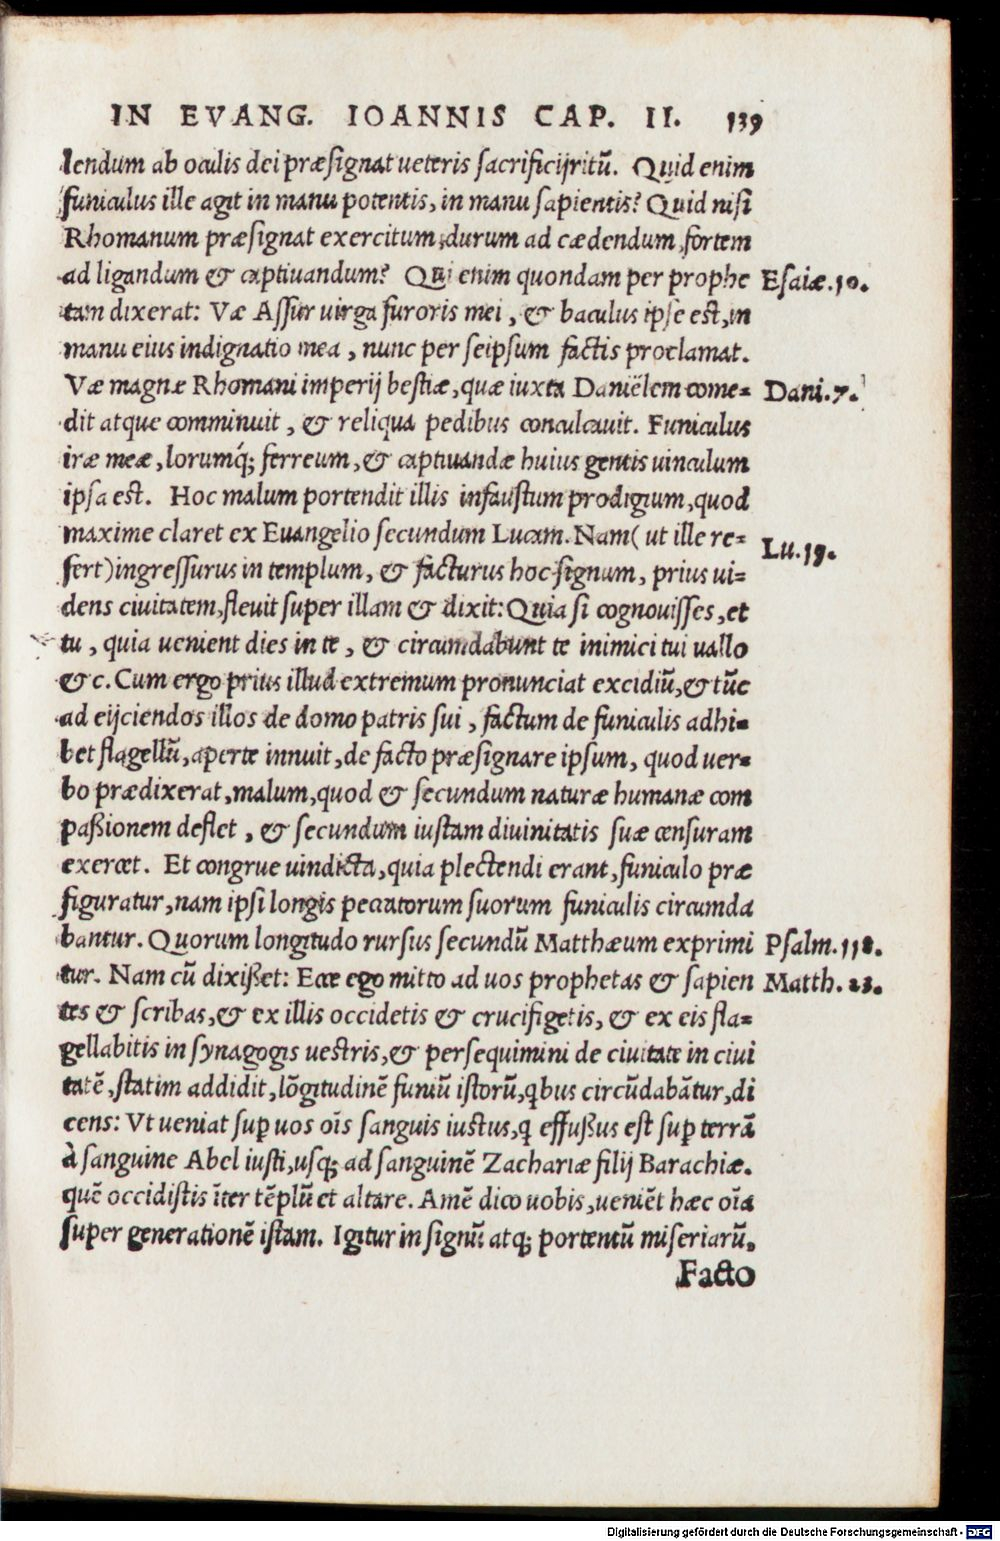 IN EVANG. IOANNIS CAP. II. 139
lendum ab oculis dei præsignat ueteris sacrificij ritū. Quid enim
funiculus ille agit in manu potentis, in manu sapientis? Quid nisi
Rhomanum præsignat exercitum, durum ad cædendum, fortem
ad ligandum & captiuandum? Qui enim quondam per prophe
Esaiæ. 10.
tam dixerat: Væ Assur uirga furoris mei, & baculus ipse est, in
manu eius indignatio mea, nunc per seipsum factis proclamat.
Væ magnæ Rhomani imperij bestiæ, quæ iuxta Daniëlem come=
Dani. 7.
dit atque comminuit, & reliqua pedibus conculcauit. Funiculus
iræ meæ, lorumq́; ferreum, & captiuandæ huius gentis uinculum
ipsa est. Hoc malum portendit illis infaustum prodigium, quod
maxime claret ex Euangelio secundum Lucam. Nam( ut ille re=
Lu. 19.
fert)ingressurus in templum, & facturus hoc signum, prius ui=
dens ciuitatem, fleuit super illam & dixit: Quia si cognouisses, et
tu, quia uenient dies in te, & circumdabunt te inimici tui uallo
&c. Cum ergo prius illud extremum pronunciat excidiū, & tūc
ad eijciendos illos de domo patris sui, factum de funiculis adhi=
bet flagellū, aperte innuit, de facto præsignare ipsum, quod uer=
bo prædixerat, malum, quod & secundum naturæ humanæ com
paßionem deflet, & secundum iustam diuinitatis suæ censuram
exercet. Et congrue uindicta, quia plectendi erant, funiculo præ
figuratur, nam ipsi longis peccatorum suorum funiculis circumda
bantur. Quorum longitudo rursus secundū Matthæum exprimi
Psalm. 118.
tur. Nam cū dixißet: Ecce ego mitto ad uos prophetas & sapien
Matth. 23.
tes & scribas, & ex illis occidetis & crucifigetis, & ex eis fla=
gellabitis in synagogis uestris, & persequimini de ciuitate in ciui
tatē, statim addidit, lōgitudinē funiū istorū, qbus circūdabātur, di
cens: Vt ueniat sup uos oīs sanguis iustus, q effußus est sup terrā
à sanguine Abel iusti, usq; ad sanguinē Zachariæ filij Barachiæ.
quē occidistis īter tēplū et altare. Amē dico uobis, ueniēt hæc oīa
super generationē istam. Igitur in signū atq; portentū miseriarū.
Facto
Digitalisierung gefördert durch die Deutsche Forschungsgemeinschaft - DFG